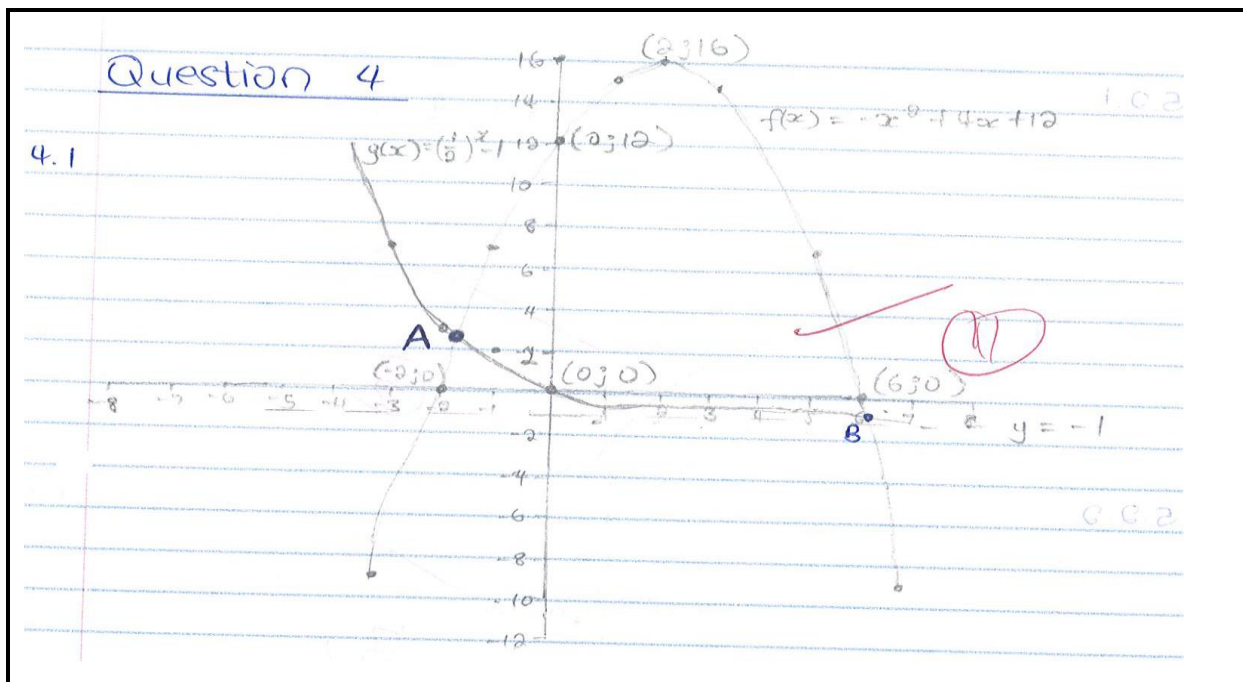 Question 4
4.1
(2;16)
f(x) = -x² + 4x + 12
g(x) = (1/2)^x - 1
(0;12)
16
14
12
10
8
6
4
2
A
(-2;0)
(0;0)
(6;0)
-8 -7 -6 -5 -4 -3 -2 -1 1 2 3 4 5 6 7 8
B
y = -1
-2
-4
-6
-8
-10
-12
11